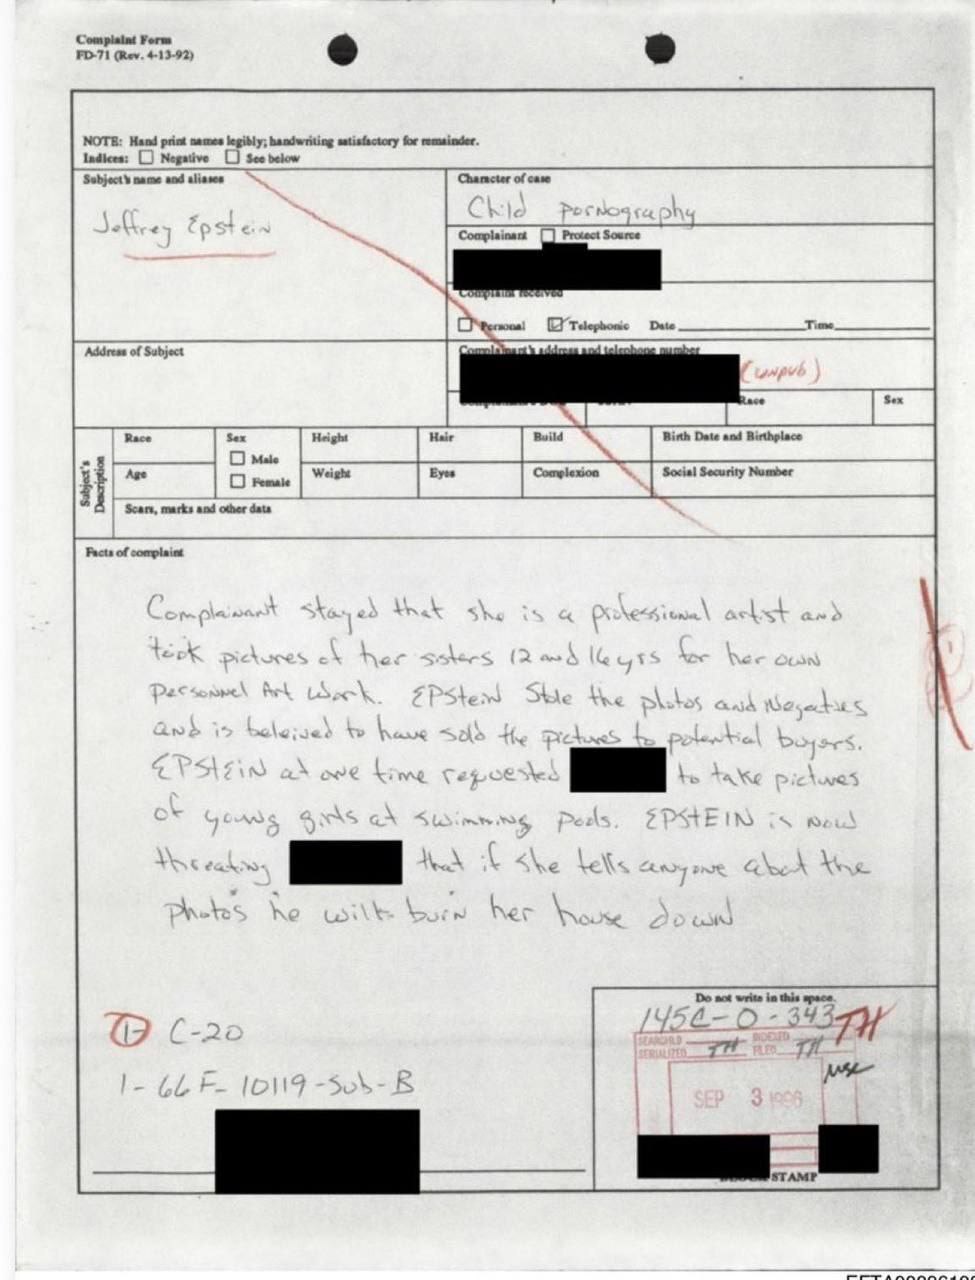 Complaint Form
FD-71 (Rev. 4-13-92)
NOTE: Hand print names legibly; handwriting satisfactory for remainder.
Indices: Negative See below
Subject's name and aliases
Jeffrey Epstein
Character of case
Child Pornography
Complainant Protect Source
Complaint received
Personal Telephonic Date Time
Address of Subject
Complainant's address and telephone number
(unpub)
Race Sex
Subject's Description
Race Sex Height Hair Build Birth Date and Birthplace
Male
Age Female Weight Eyes Complexion Social Security Number
Scars, marks and other data
Facts of complaint
Complainant stayed that she is a professional artist and
took pictures of her sisters 12 and 16 yrs for her own
personnel Art Work. EPStein Stole the photos and Negatives
and is beleived to have sold the pictures to potential buyers.
EPSTEIN at one time requested to take pictures
of young girls at swimming pools. EPSTEIN is now
threating that if she tells anyone abot the
photos he will burn her house down
1- C-20
1- 66F-10119-Sub-B
Do not write in this space.
145C-0-343 TH
SEARCHED INDEXED
SERIALIZED TH FILED TH
SEP 3 1996
STAMP